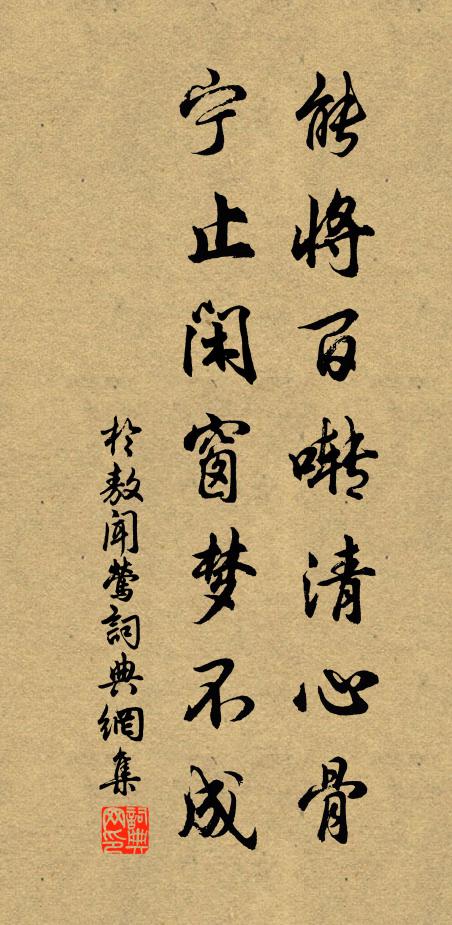 能将百啭清心骨
宁止闲窗梦不成
於敖闻莺詞典網集
詞典网印